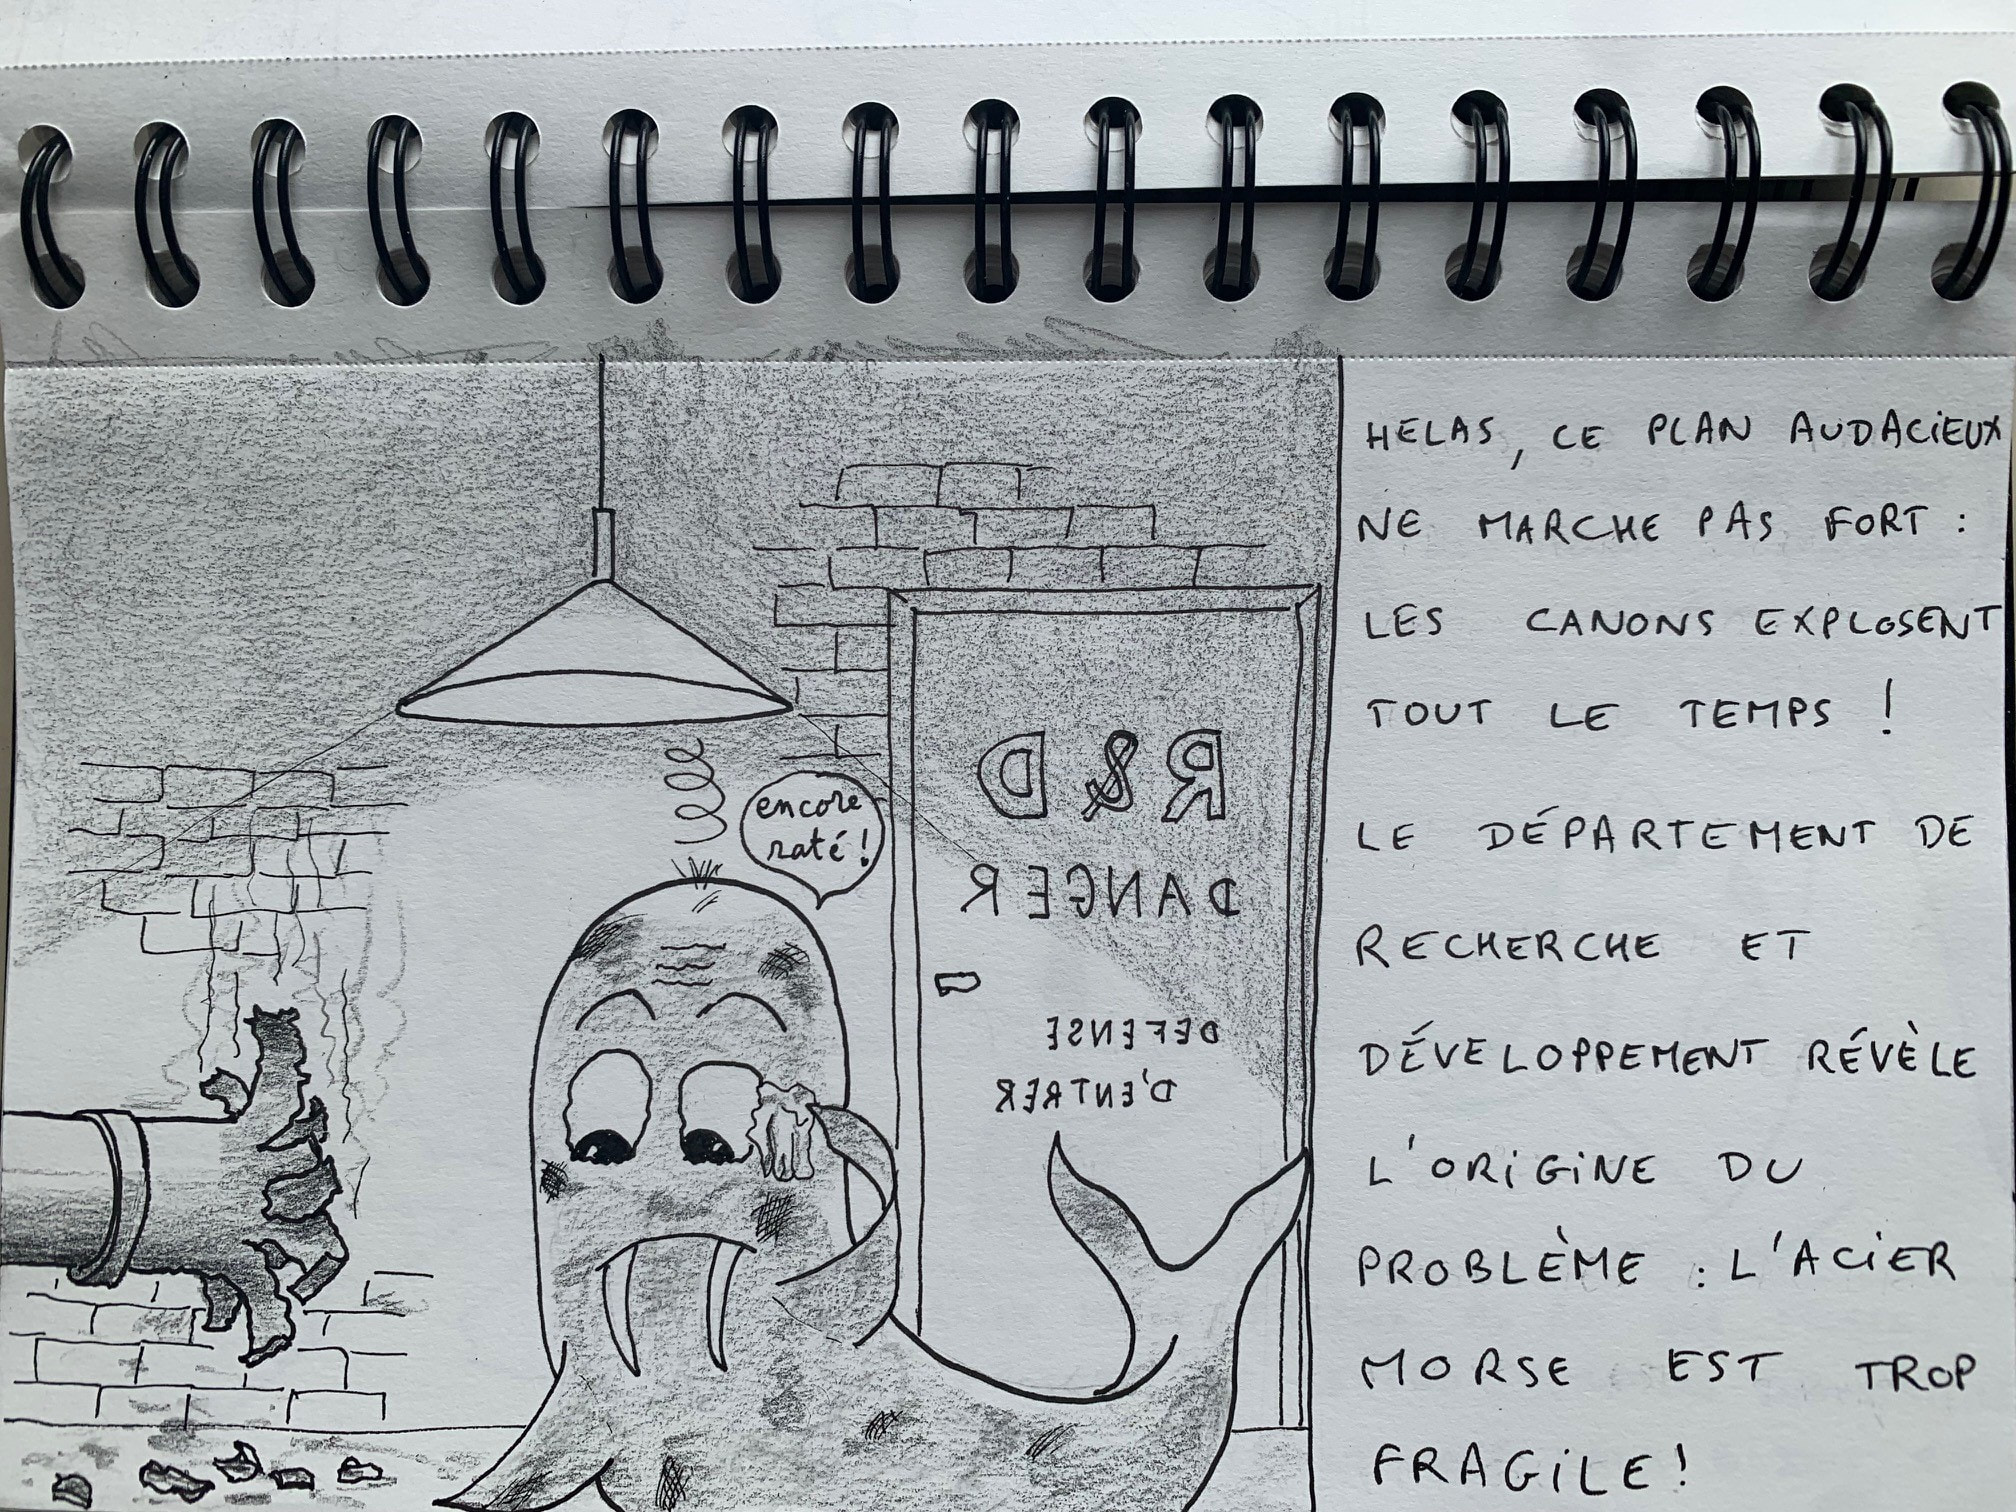 encore
raté!
R&D
DANGER
DEFENSE
D'ENTRER
HELAS, CE PLAN AUDACIEUX
NE MARCHE PAS FORT :
LES CANONS EXPLOSENT
TOUT LE TEMPS !
LE DÉPARTEMENT DE
RECHERCHE ET
DÉVELOPPEMENT RÉVÈLE
L'ORIGINE DU
PROBLÈME : L'ACIER
MORSE EST TROP
FRAGILE !